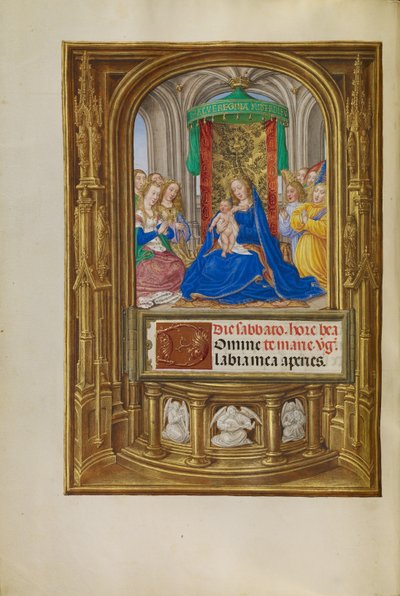 SALVE REGINA MISERICOR
Die sabbato. hore bea
Omine te marie v̄ḡ.
labia mea aperies.